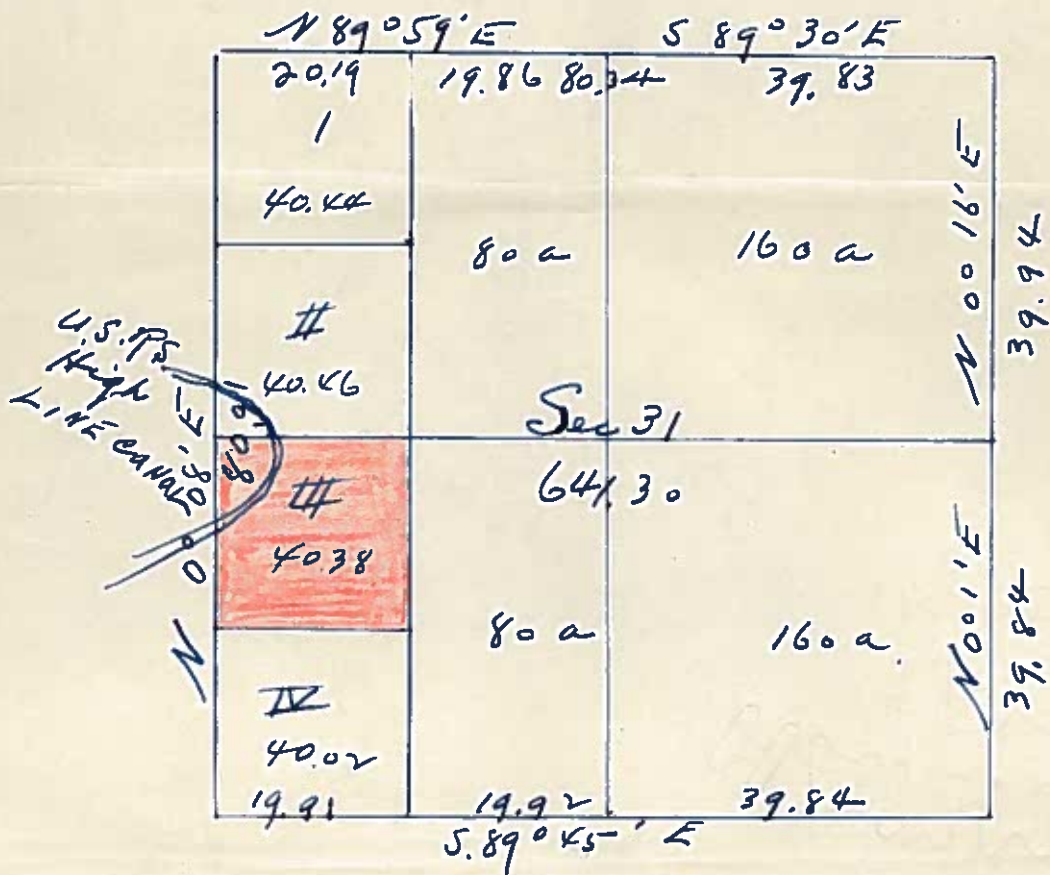 N 89°59' E S 89°30' E
20.19 19.86 80.34 39.83
I
40.44
80 a 160 a
N 00 16' E
39.94
II
40.46
U.S.R.S.
High
LINE CANAL
Sec 31
641.30
III
40.38
80 a 160 a.
N 0° 1' E
39.84
N 0°
IV
40.02
19.91 19.92 39.84
S. 89° 45' E